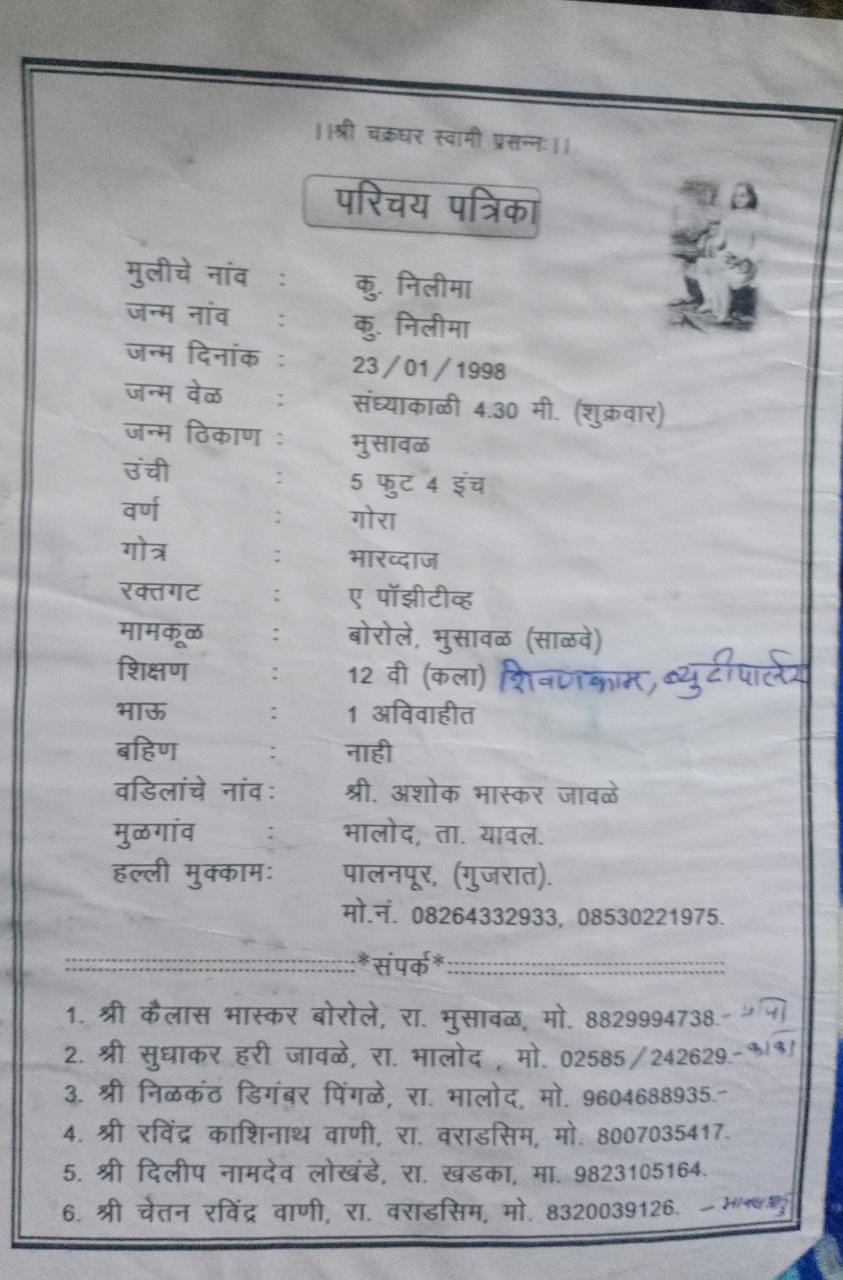 ।।श्री चक्रधर स्वामी प्रसन्नः।।
परिचय पत्रिका
मुलीचे नांव : कु. निलीमा
जन्म नांव : कु. निलीमा
जन्म दिनांक : 23/01/1998
जन्म वेळ : संध्याकाळी 4.30 मी. (शुक्रवार)
जन्म ठिकाण : भुसावळ
उंची : 5 फुट 4 इंच
वर्ण : गोरा
गोत्र : भारव्दाज
रक्तगट : ए पॉझीटीव्ह
मामकूळ : बोरोले, भुसावळ (साळवे)
शिक्षण : 12 वी (कला) शिवणकाम, ब्युटीपार्लर
भाऊ : 1 अविवाहीत
बहिण : नाही
वडिलांचे नांव: श्री. अशोक भास्कर जावळे
मुळगांव : भालोद, ता. यावल.
हल्ली मुक्काम: पालनपूर, (गुजरात).
मो.नं. 08264332933, 08530221975.
*संपर्क*
1. श्री कैलास भास्कर बोरोले, रा. भुसावळ, मो. 8829994738.-
2. श्री सुधाकर हरी जावळे, रा. भालोद , मो. 02585/242629.- काका
3. श्री निळकंठ डिगंबर पिंगळे, रा. भालोद, मो. 9604688935.-
4. श्री रविंद्र काशिनाथ वाणी, रा. वराडसिम, मो. 8007035417.
5. श्री दिलीप नामदेव लोखंडे, रा. खडका, मा. 9823105164.
6. श्री चेतन रविंद्र वाणी, रा. वराडसिम, मो. 8320039126. -